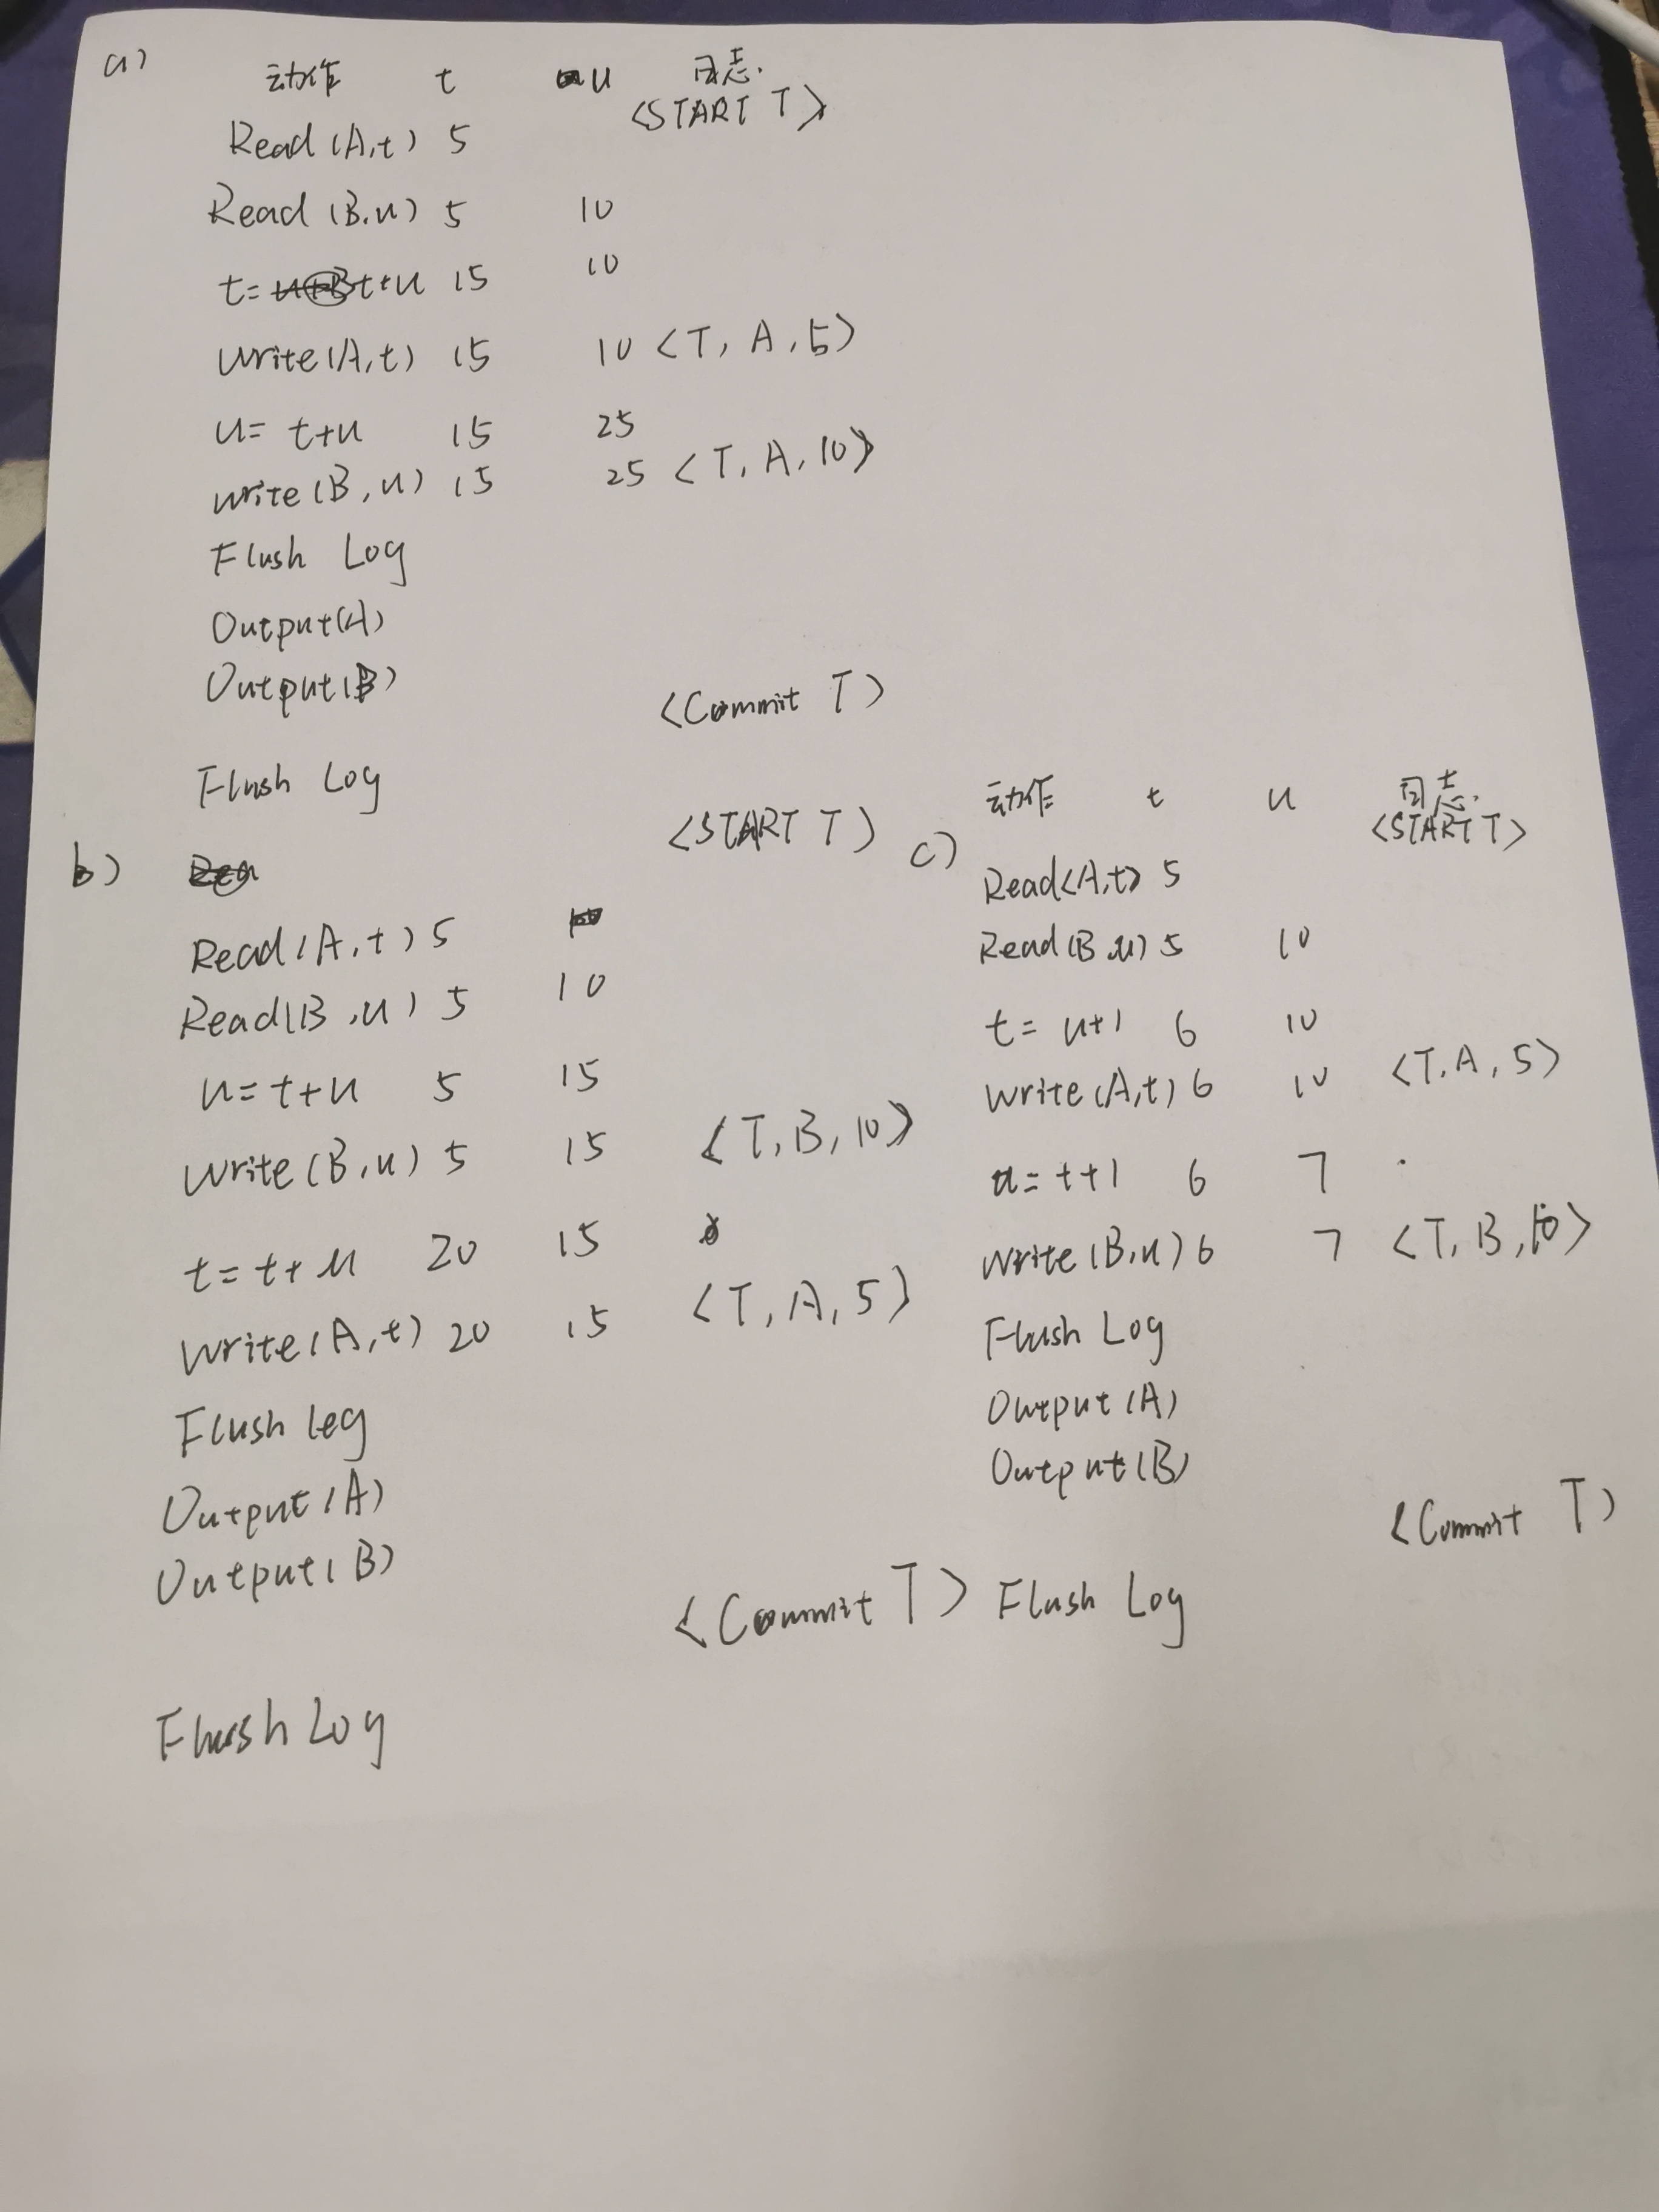 a)
动作 t u 日志.
<START T>
Read (A,t) 5
Read (B.u) 5 10
t= t+u 15 10
Write(A,t) 15 10 <T, A, 5>
u= t+u 15 25
write (B,u) 15 25 <T, A, 10>
Flush Log
Output(A)
Output(B)
<Commit T>
Flush Log
b)
<START T>
Read(A,t) 5
Read(B,u) 5 10
u=t+u 5 15
Write(B,u) 5 15 <T, B, 10>
t=t+u 20 15
Write(A,t) 20 15 <T, A, 5>
Flush Log
Output(A)
Output(B)
<Commit T>
Flush Log
c)
动作 t u 日志.
<START T>
Read<A,t> 5
Read(B,u) 5 10
t= u+1 6 10
Write(A,t) 6 10 <T,A,5>
u=t+1 6 7
Write(B,u) 6 7 <T, B, 10>
Flush Log
Output(A)
Output(B)
<Commit T>
Flush Log